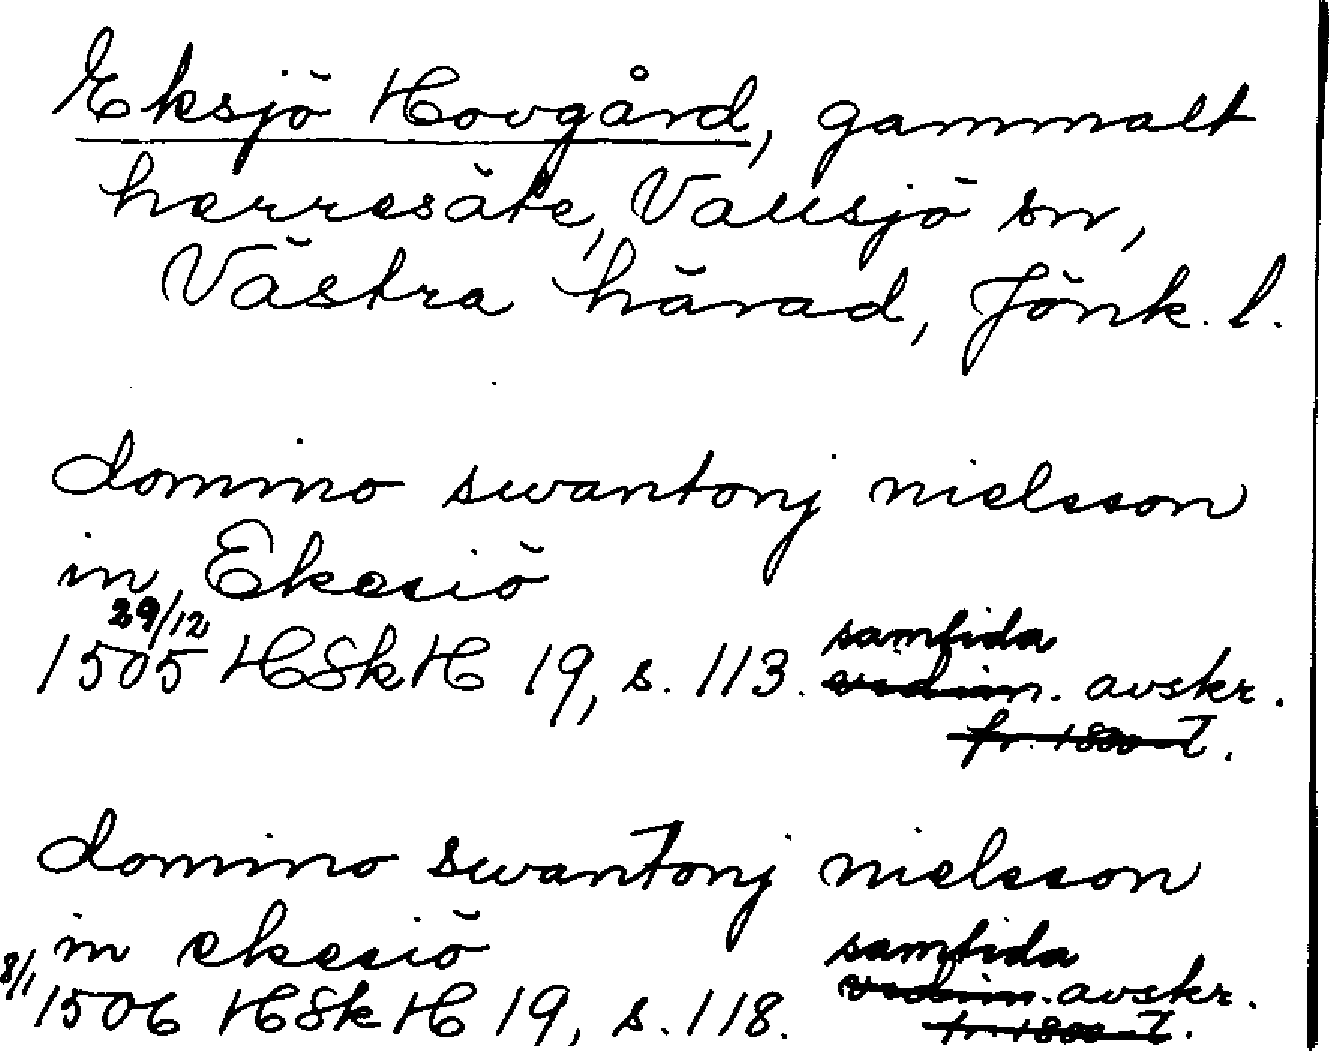 Eksjö Hovgård, gammalt
herresäte, Vallsjö sn,
Västra härad, Jönk. l.
domino swantonj nielsson
in Ekesiö
29/12
1505 HSkH 19, s. 113. samtida
vidim. avskr.
fr. 1800-t.
domino swantonj nielsson
in ekesiö
8/1 1506 HSkH 19, s. 118. samtida
vidim. avskr.
fr. 1800-t.